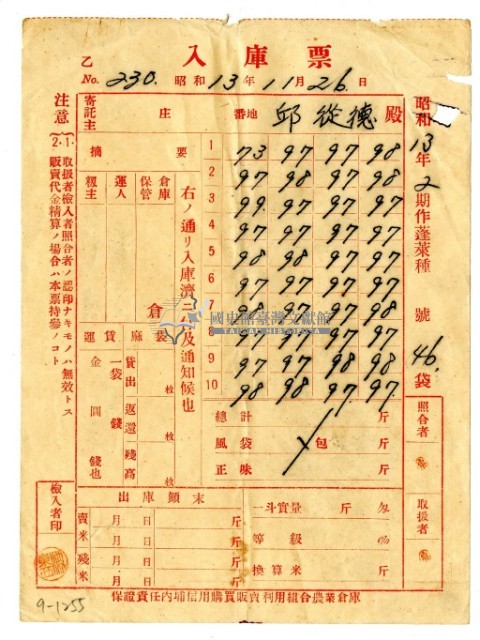 入庫票
乙
No. 230. 昭和13年11月26日
寄託主 庄 番地 邱從德殿
昭和13年2期作蓬萊種 號 46.袋
摘要
1 73 97 97 98
2 97 98 97 98
3 99. 97 97 97
4 97. 97 97 97.
5 98 98 97 97
6 97 97 97 97.
7 98 97 97 98
97 97 97 97.
9 97 97 98 98
10 98 98 97. 97.
總計 斤
風袋 包 斤
正味 斤
右ノ通リ入庫濟ニ及通知候也
倉庫保管
運人
籾主
倉
運賃 麻袋
一袋 錢
金 圓 錢也
貸出 枚
返還 枚
殘高 枚
照合者
取扱者
注意
1. 取扱者檢入者照合者ノ認印ナキモノハ無效トス
2. 販賣代金精算ノ場合ハ本票持參ノコト
檢入者印
出庫顛末
賣米 月 日 斤
月 日 斤
殘米 月 日 斤
月 日 斤
一斗實量 斤 匁
等級 %
換算米 斤
保證責任內埔信用購買販賣利用組合農業倉庫
9-1255
國史館臺灣文獻館
TAIWAN HISTORICA